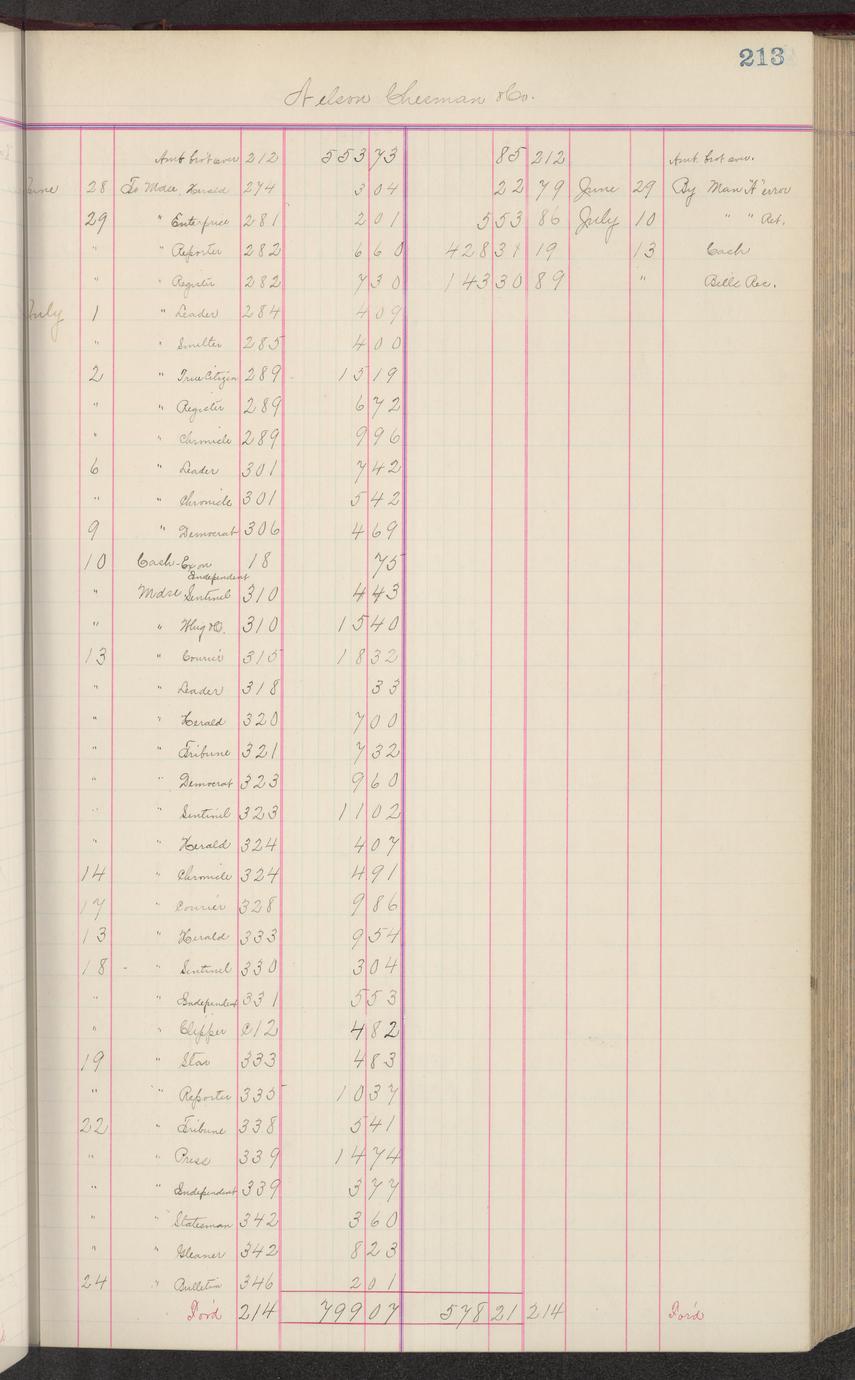 213
Nelson Chesman & Co.
Amt brot over 212 553 73 85 212 Amt. brot over.
June 28 To Mdse. Herald 274 3 04 22 79 June 29 By Man "A" error
29 " Enterprise 281 2 01 5 53 86 July 10 " " Ret.
" " Reporter 282 6 60 428 31 19 13 Cash
" " Register 282 7 30 143 30 89 " Bills Rec.
July 1 " Leader 284 4 09
" " Smelter 285 4 00
2 " True Citizen 289 15 19
" " Register 289 6 72
" " Chronicle 289 9 96
6 " Leader 301 7 42
" " Chronicle 301 5 42
9 " Democrat 306 4 69
10 Cash-Ex on 18 75
Independent
" Mdse Sentinel 310 4 43
" " 310 15 40
13 " Courier 315 18 32
" " Leader 318 33
" " Herald 320 7 00
" " Tribune 321 7 32
" " Democrat 323 9 60
" " Sentinel 323 11 02
" " Herald 324 4 07
14 " Chronicle 324 4 91
17 " Courier 328 9 86
13 " Herald 333 9 54
18 " Sentinel 330 3 04
" " Independent 331 5 53
" " Clipper C12 4 82
19 " Star 333 4 83
" " Reporter 335 10 37
22 " Tribune 338 5 41
" " Press 339 14 74
" " Independent 339 3 77
" " Statesman 342 3 60
" " Gleaner 342 8 23
24 " Bulletin 346 2 01
For'd 214 799 07 578 21 214 For'd